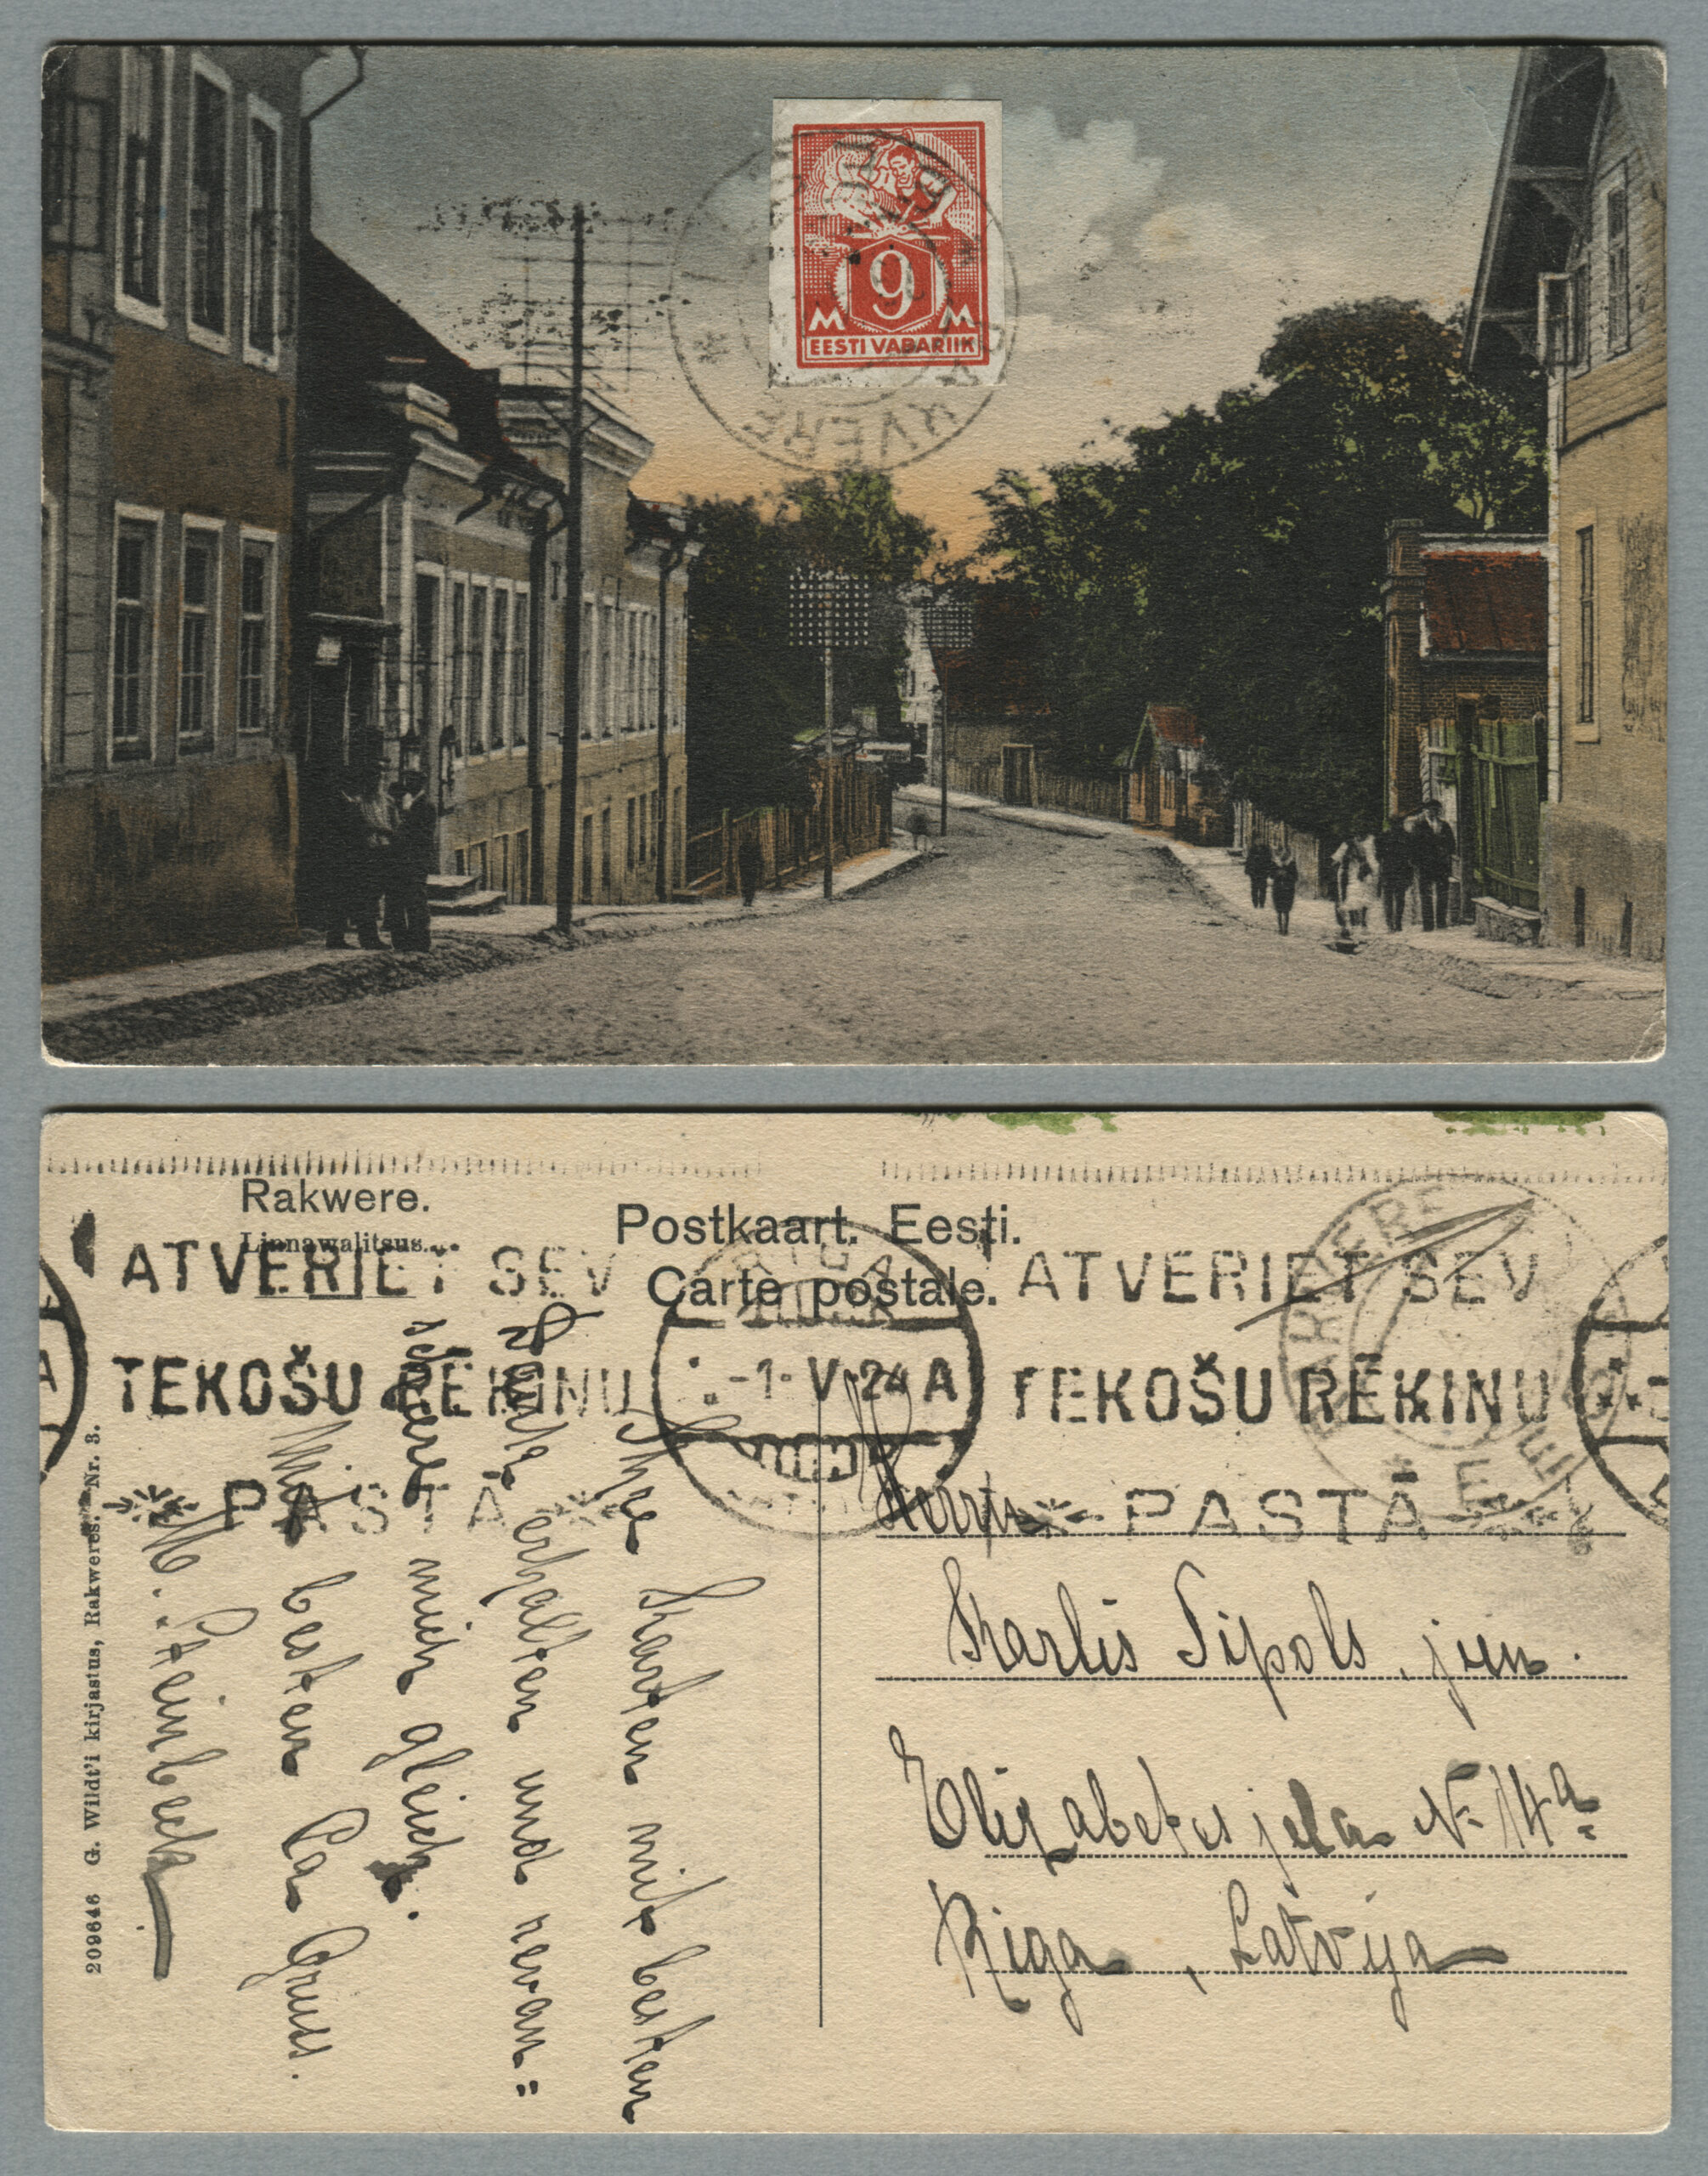 9
M M
EESTI VABARIIK
RAKVERE
Rakwere.
Linnawalitsus.
Postkaart. Eesti.
Carte postale.
ATVERIET SEV
TEKOŠU RĒĶINU
PASTĀ
RIGA
-1-V 24 A
ATVERIET SEV
TEKOŠU RĒĶINU
PASTĀ
RAKVERE EESTI
Ihre Karten mit besten
Dank erhalten und revan=
schiere mich gleich.
Mit besten Ca Gruss.
M. Steinbeck
Herrn
Karlis Sipols, jun.
Elizabetes iela N 14a
Riga, Latvija
209646 G. Wildt'i kirjastus, Rakweres. Nr. 3.